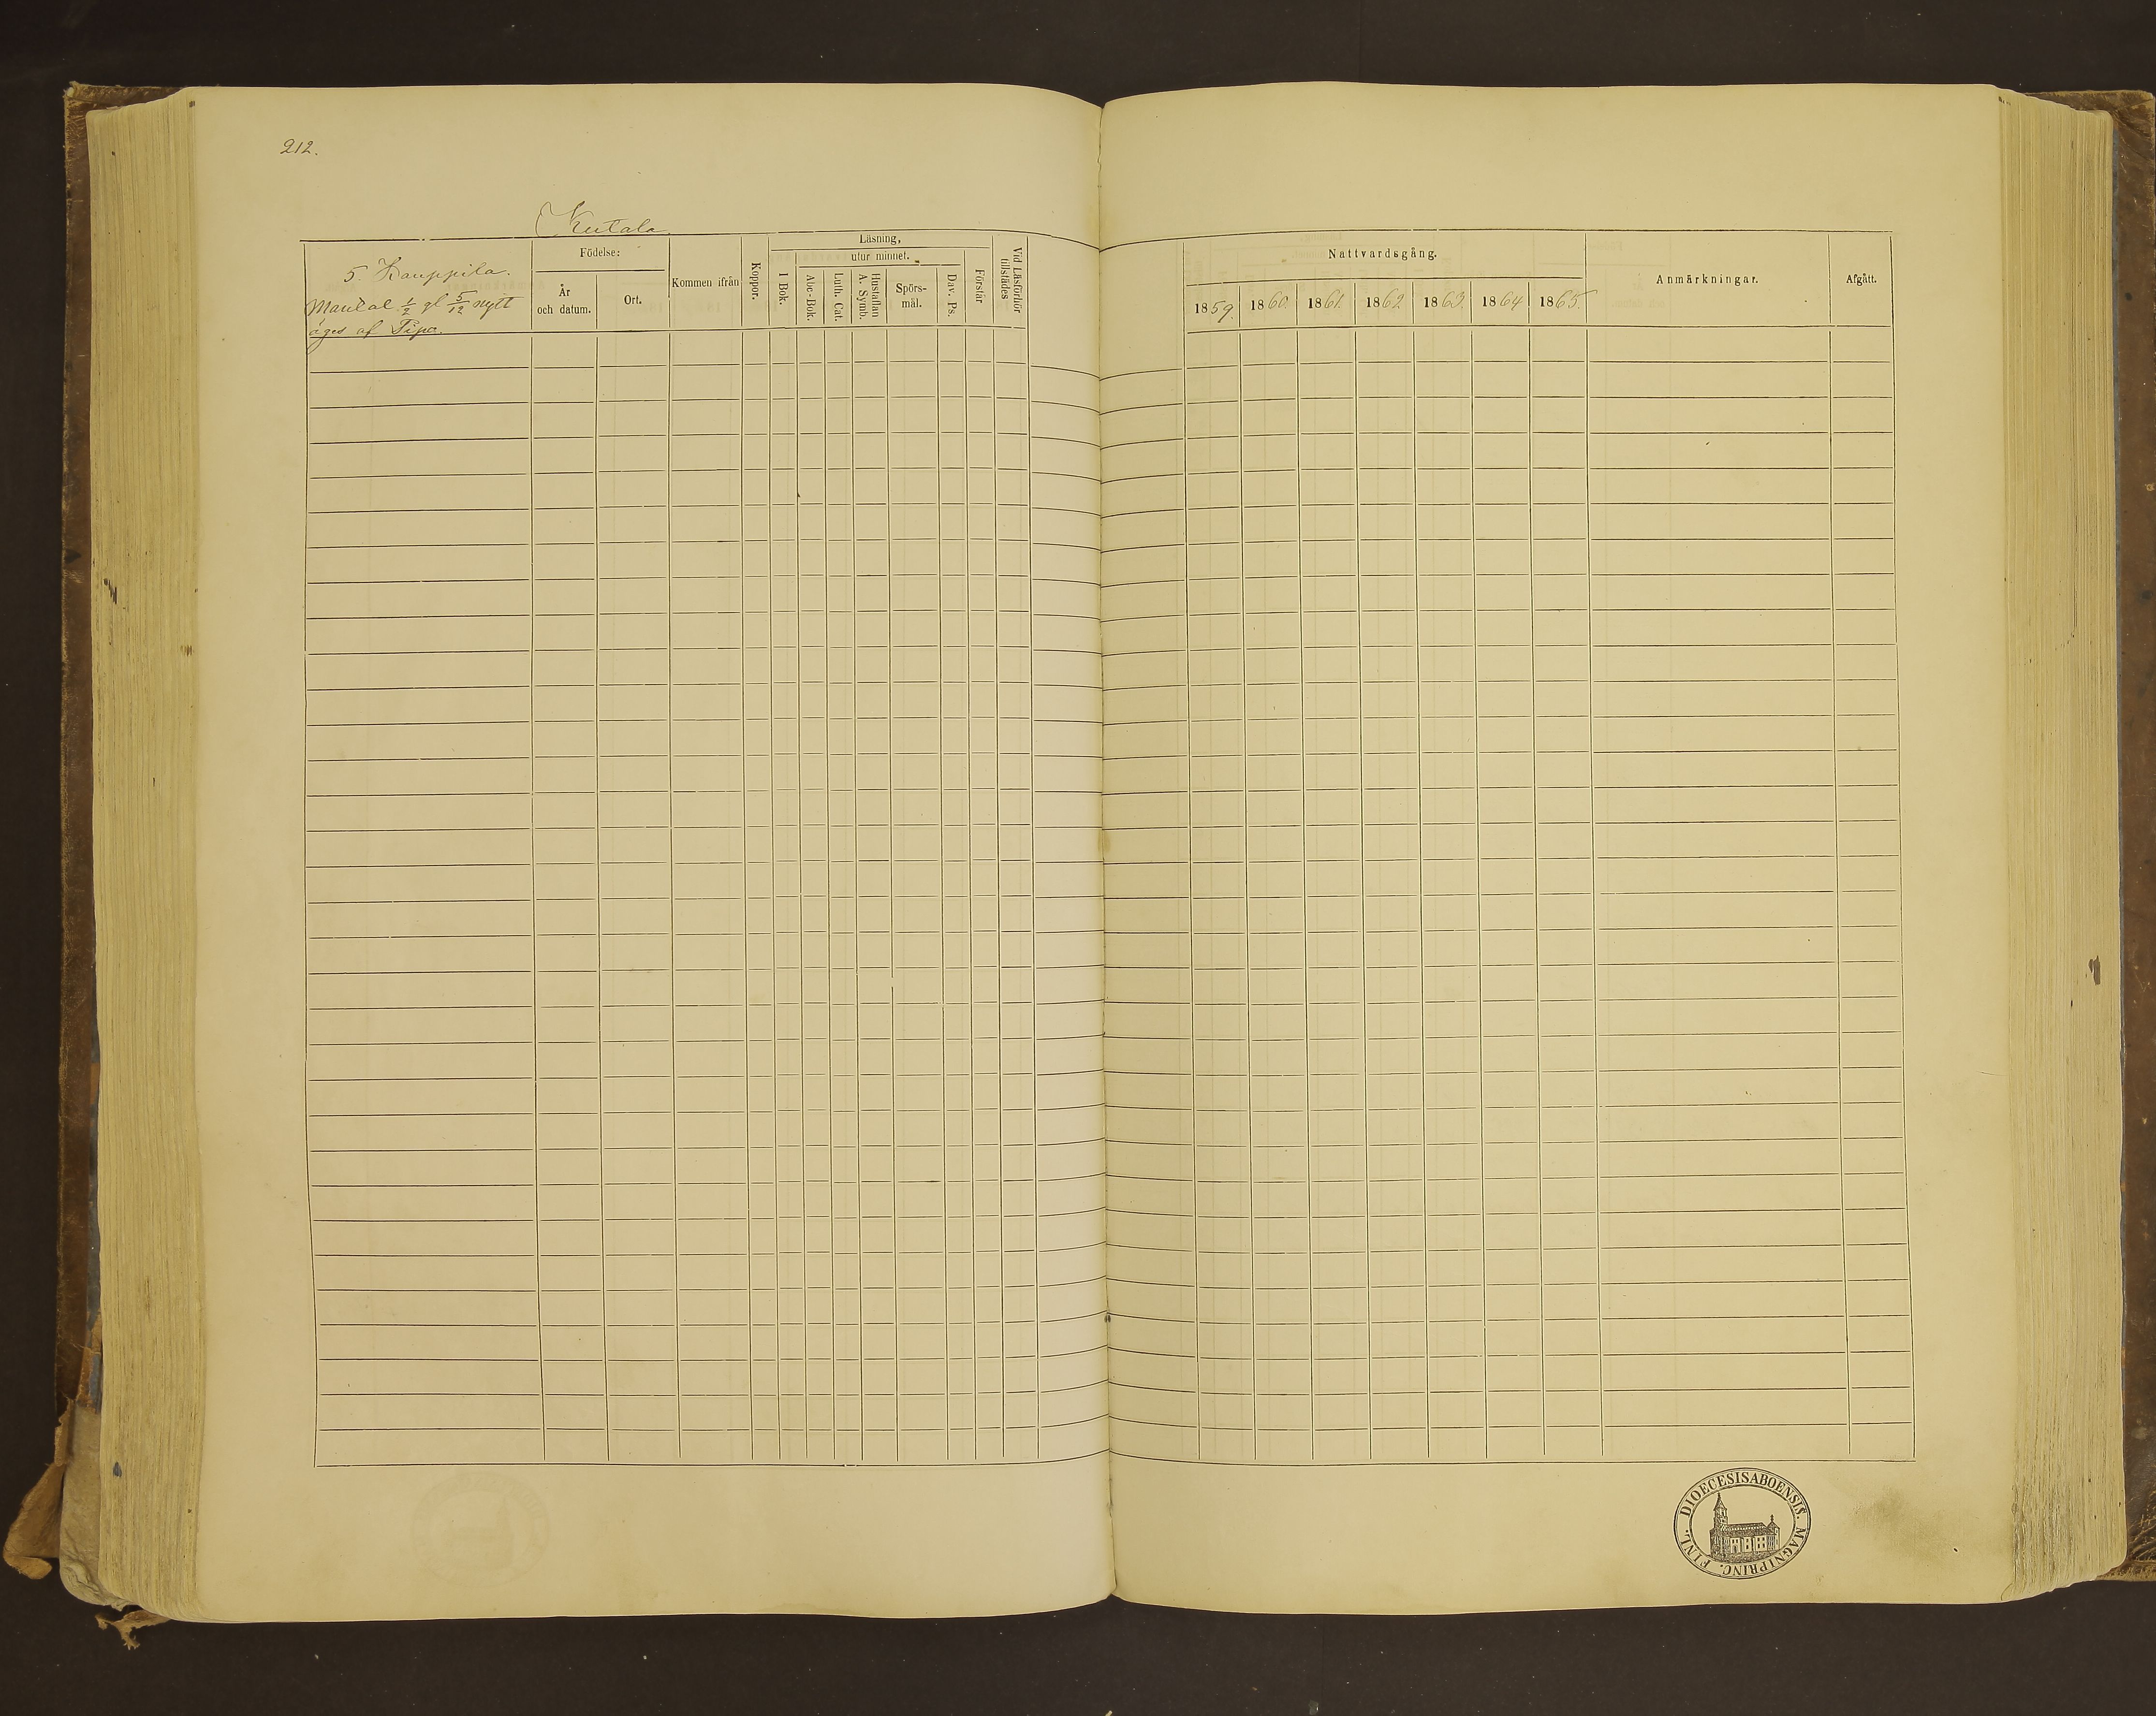 212.
Kutala
5 Kauppila.
Mantal 1/2 gl 5/12 nytt
äges af Pipo.
Födelse:
År
och datum.
Ort.
Kommen ifrån
Koppor.
Läsning,
utur minnet.
I Bok.
Abc-Bok.
Luth. Cat.
Hustaflan
A. Symb.
Spörs-
mål.
Dav. Ps.
Förstår
Vid Läsförhör
tillstädes
Nattvardsgång.
1859.
1860.
1861.
1862
1863.
1864
1865.
Anmärkningar.
Afgått.
DIOECESIS ABOENSIS. MAGNI PRINC. FINL.